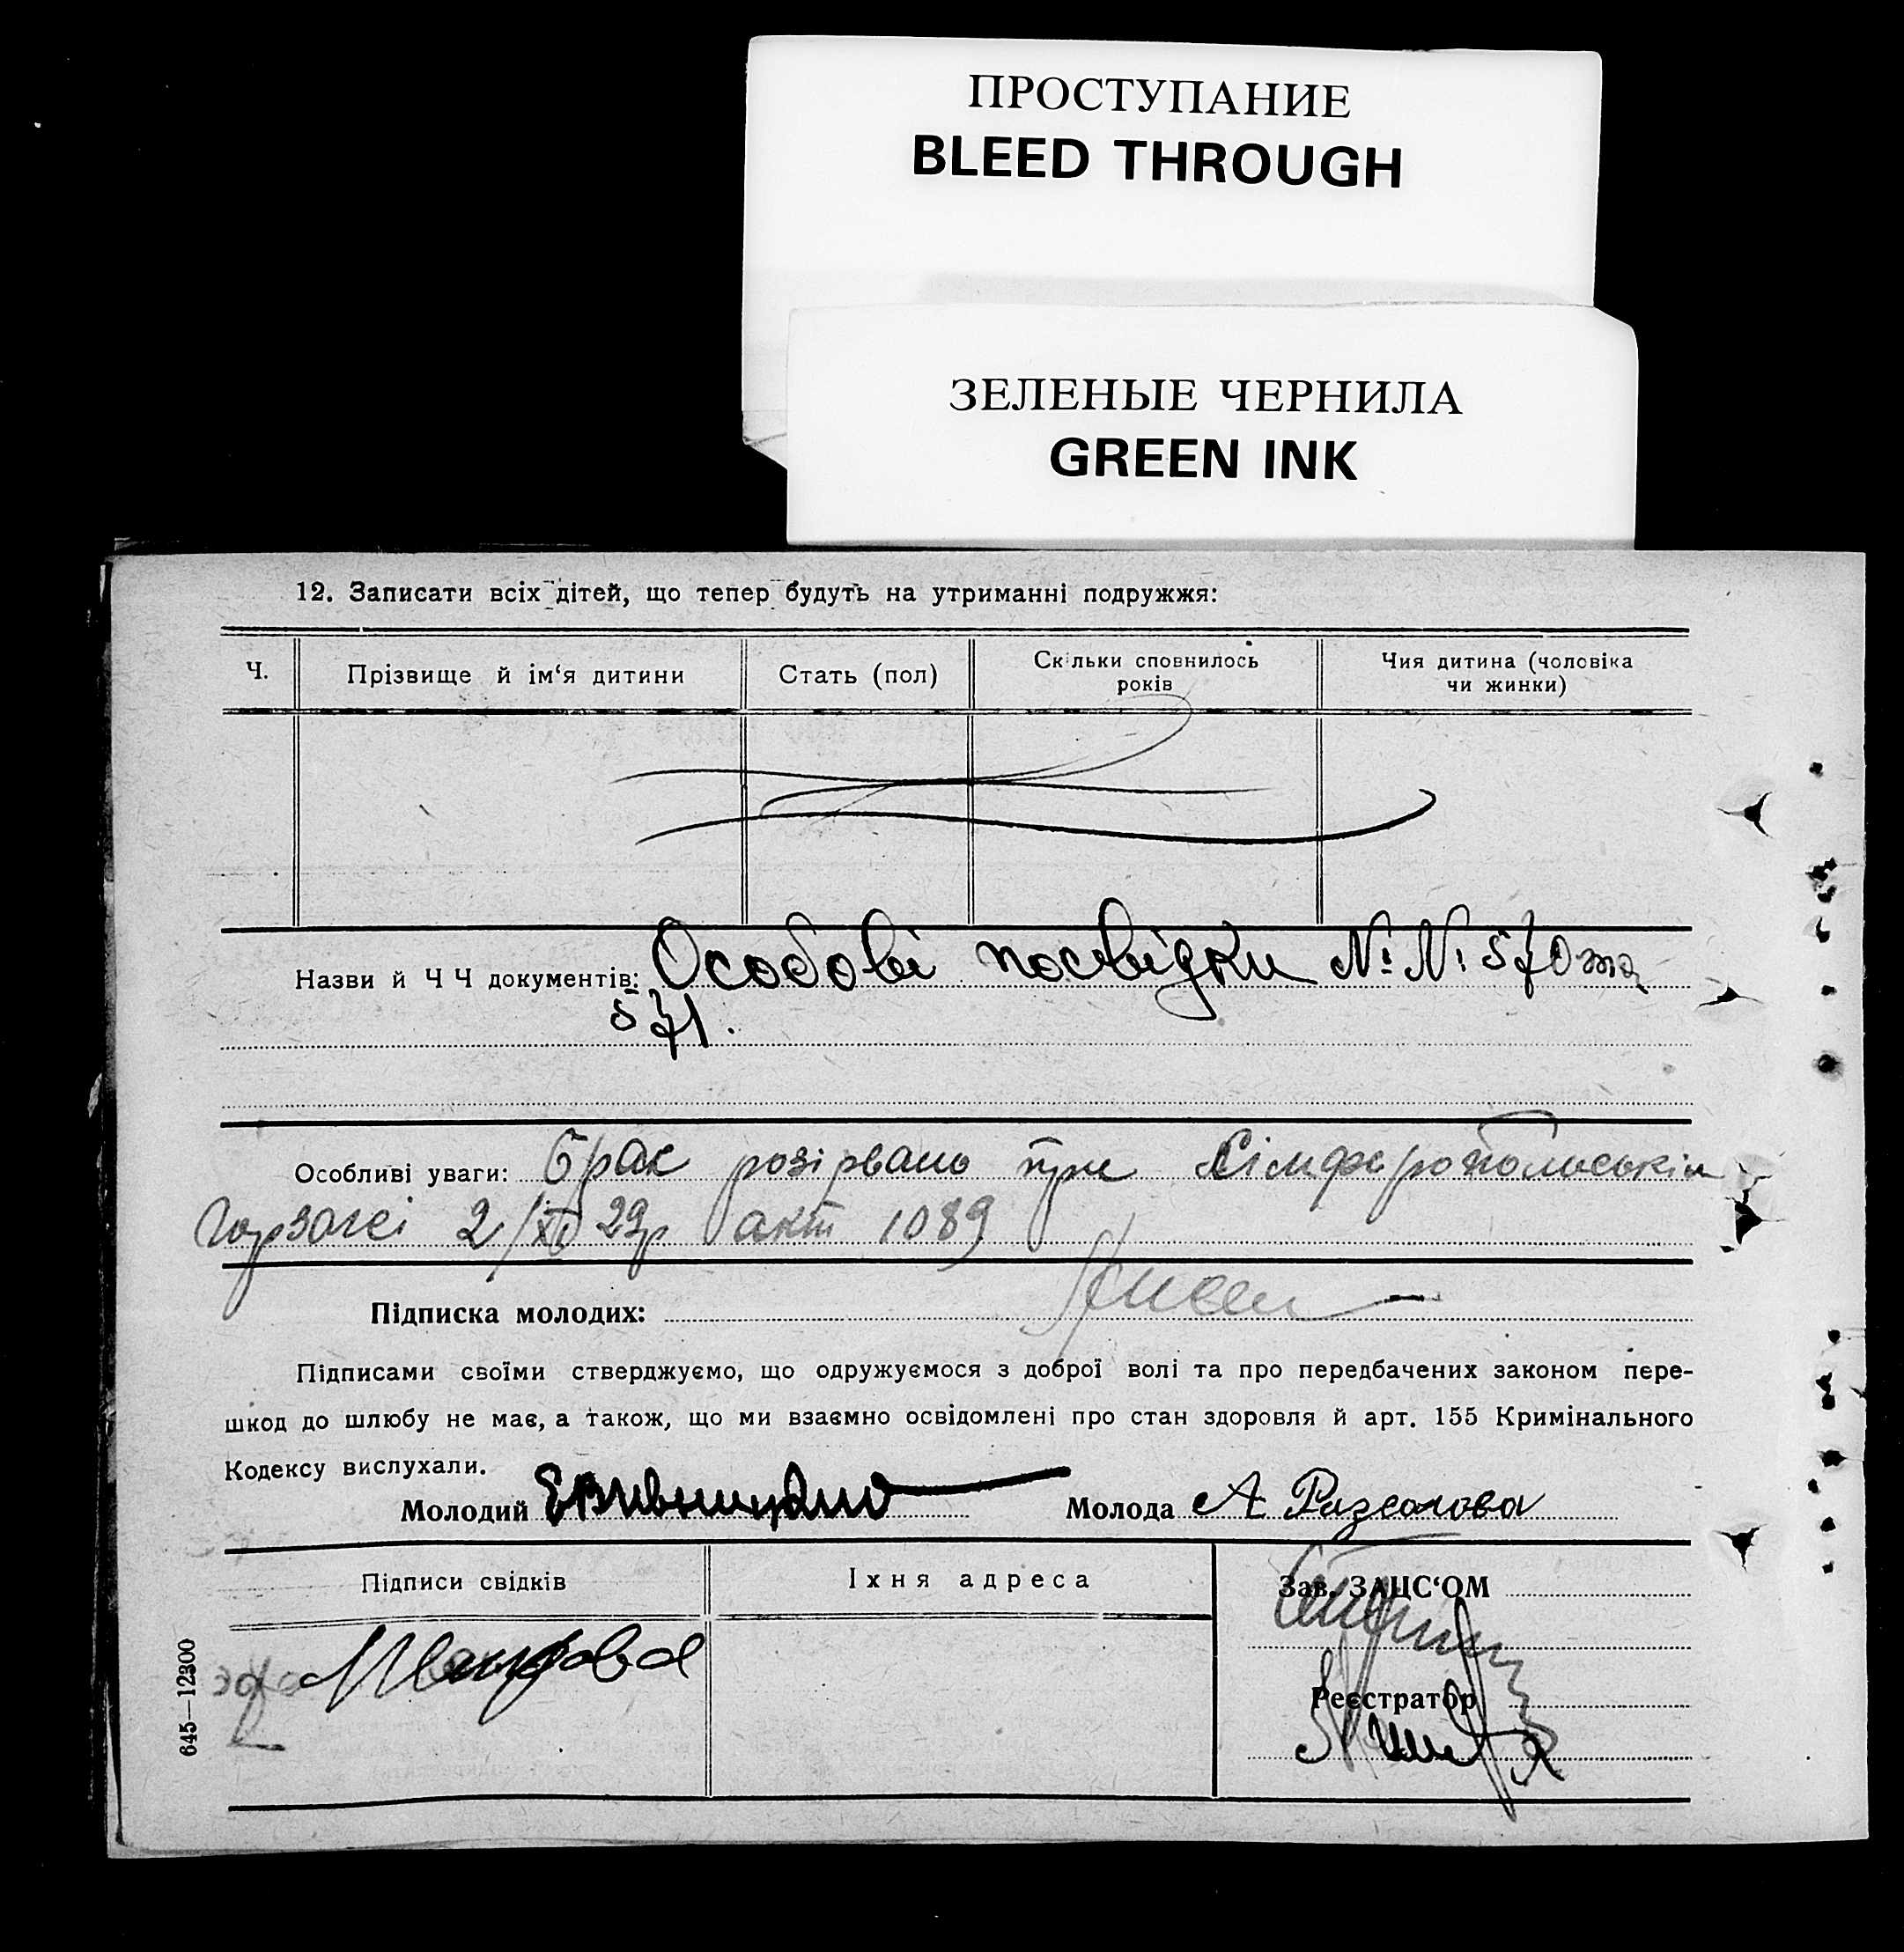 ПРОСТУПАНИЕ
BLEED THROUGH
ЗЕЛЕНЫЕ ЧЕРНИЛА
GREEN INK
12. Записати всіх дітей, що тепер будуть на утриманні подружжя:
Ч. Прізвище й ім‘я дитини Стать (пол) Скільки сповнилось Чия дитина (чоловіка
років чи жинки)
Назви й Ч Ч документів: Особові посвідки №№ 570 та
571.
Особливі уваги: Брак розірвано при Сімферопольськім
горзагсі 2/XI 29р акт 1089
Підписка молодих:
Підписами своїми стверджуємо, що одружуємося з доброї волі та про передбачених законом пере-
шкод до шлюбу не має, а також, що ми взаємно освідомлені про стан здоровля й арт. 155 Кримінального
Кодексу вислухали.
Молодий Молода А
Підписи свідків Їхня адреса Зав. ЗАЦС‘ОМ
Реєстратор
645—12300